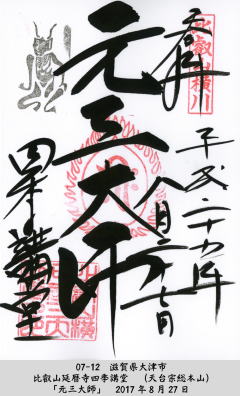 奉拝
比叡山横川
平成二十九年
八月二十七日
元三大師
四季講堂
07-12 滋賀県大津市
比叡山延暦寺四季講堂 (天台宗総本山)
「元三大師」 2017年8月27日